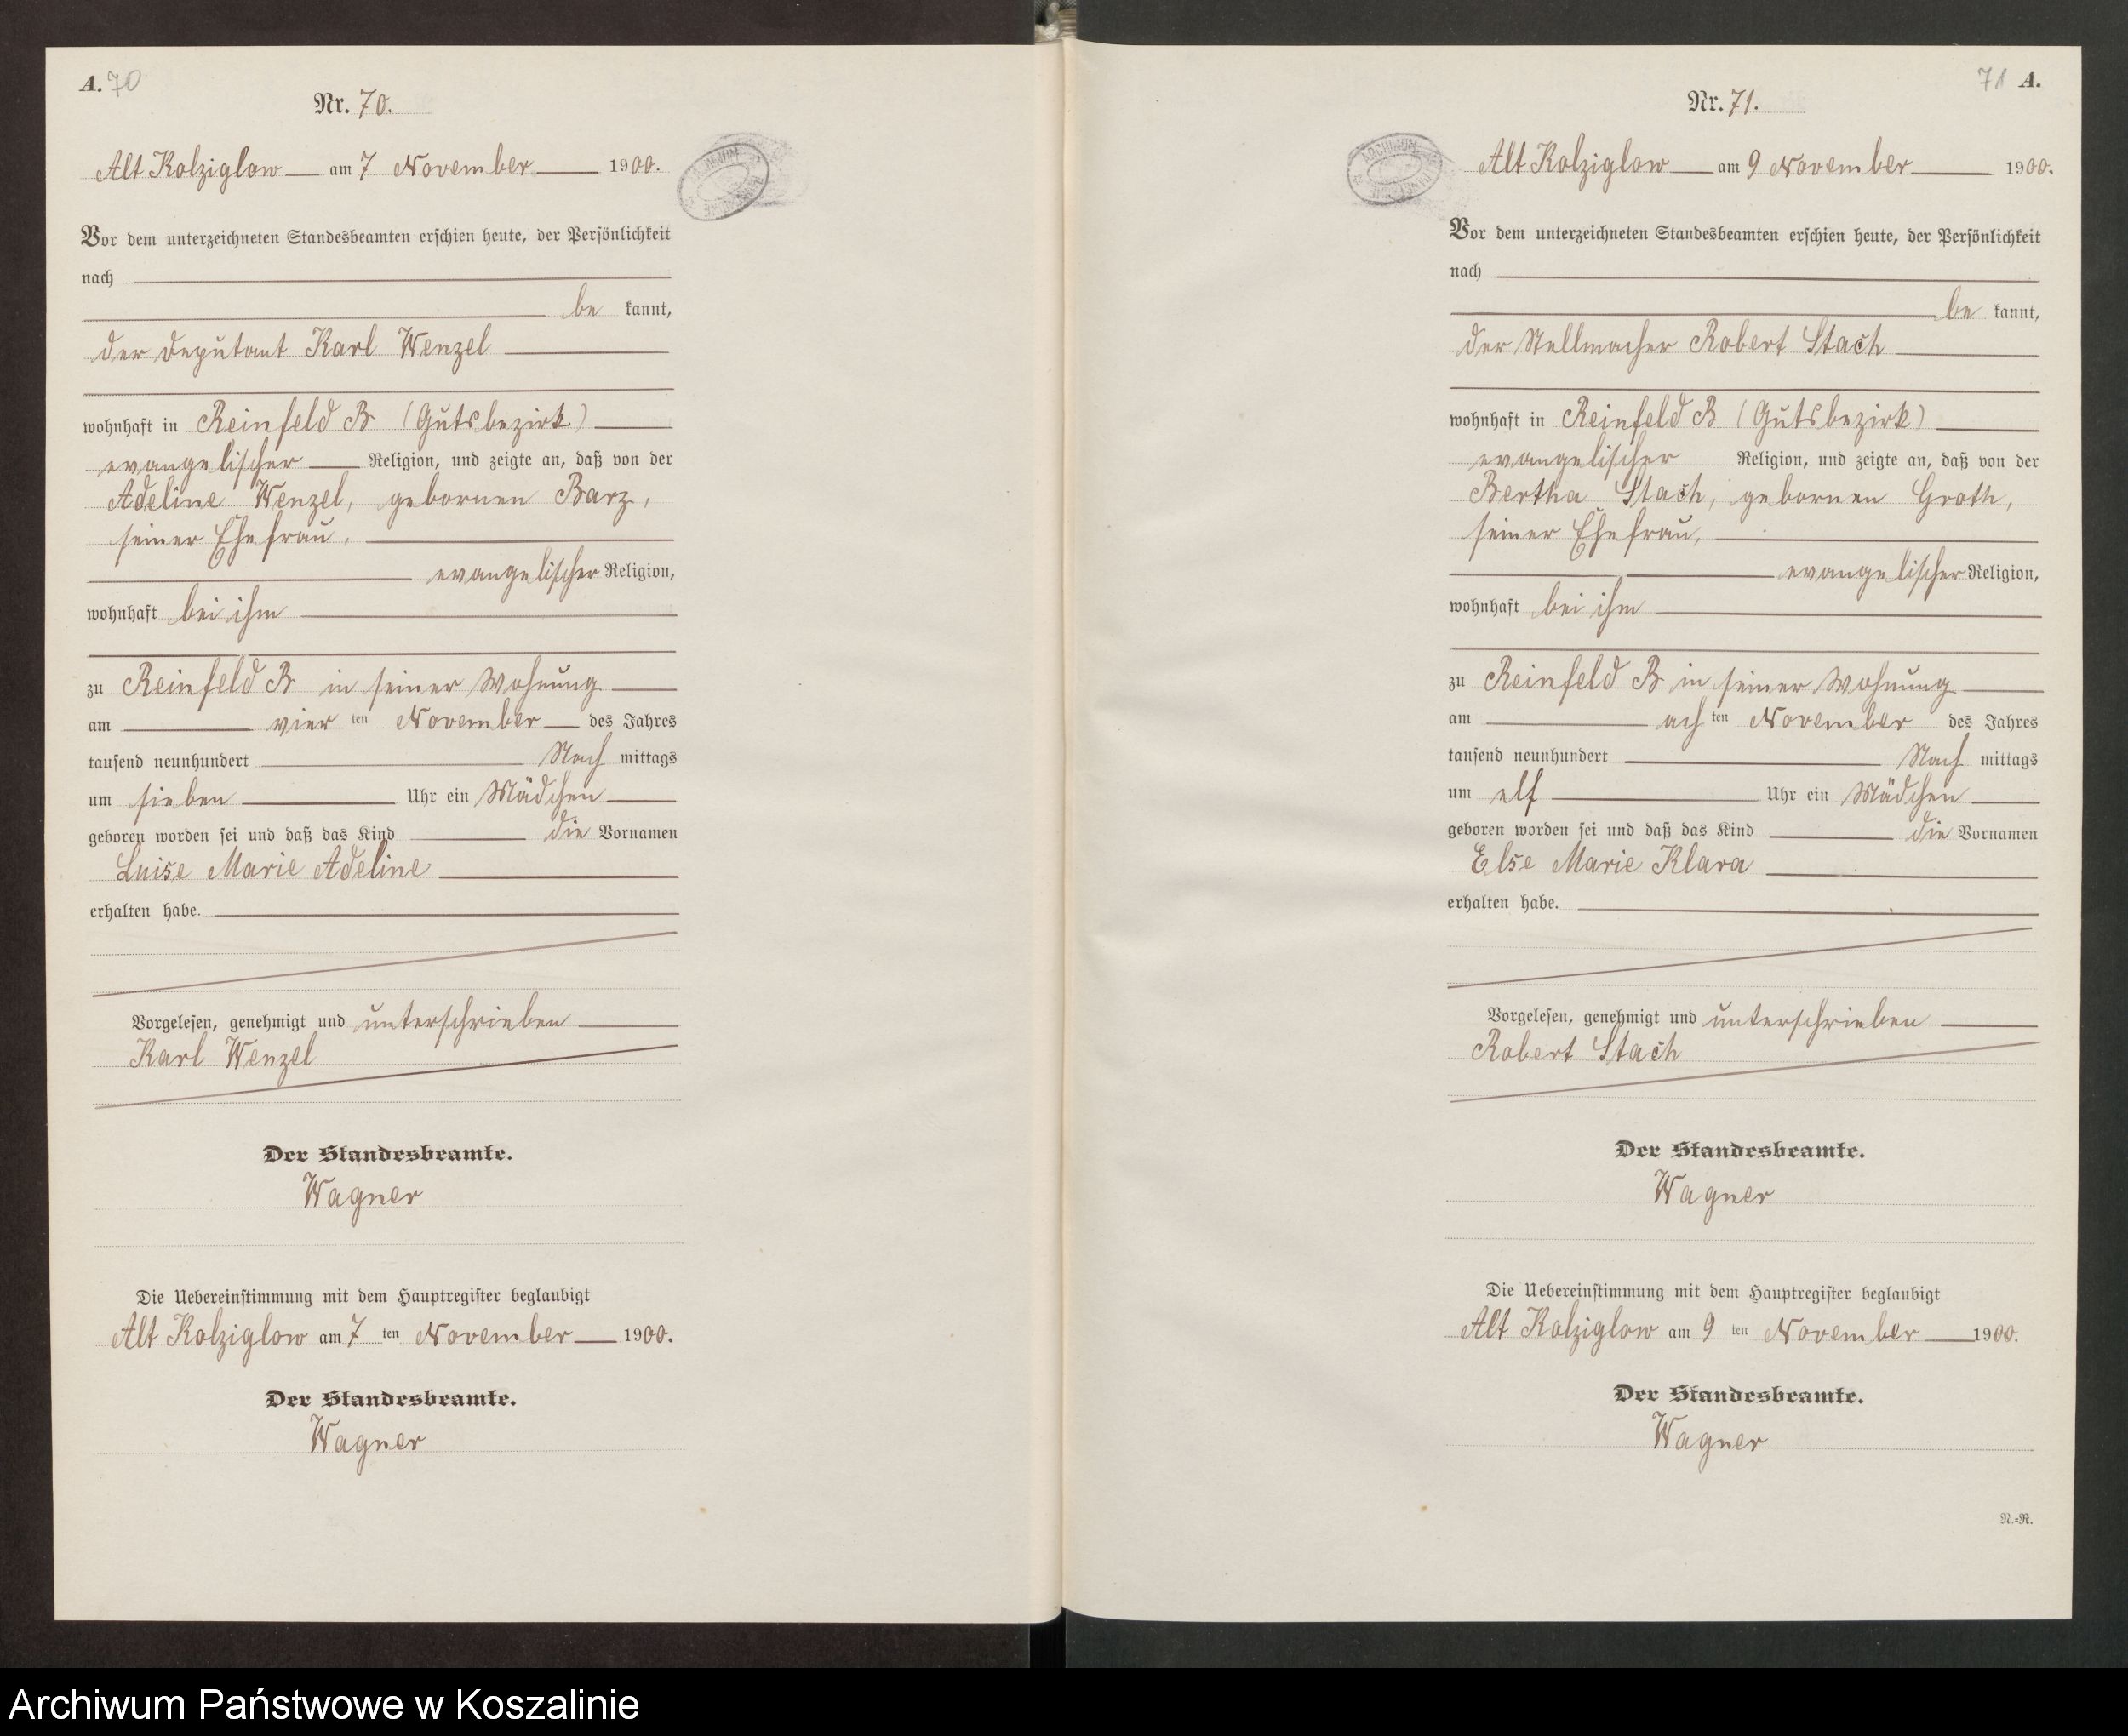 A. 70
Nr. 70.
Alt Kolziglow am 7 November 1900.
Vor dem unterzeichneten Standesbeamten erschien heute, der Persönlichkeit
nach
be kannt,
der Deputant Karl Wenzel
wohnhaft in Reinfeld B (Gutsbezirk)
evangelischer Religion, und zeigte an, daß von der
Adeline Wenzel, gebornen Barz,
seiner Ehefrau,
evangelischer Religion,
wohnhaft bei ihm
zu Reinfeld B in seiner Wohnung
am vier ten November des Jahres
tausend neunhundert Nach mittags
um sieben Uhr ein Mädchen
geboren worden sei und daß das Kind die Vornamen
Luise Marie Adeline
erhalten habe.
Vorgelesen, genehmigt und unterschrieben
Karl Wenzel
Der Standesbeamte.
Wagner
Die Uebereinstimmung mit dem Hauptregister beglaubigt
Alt Kolziglow am 7 ten November 1900.
Der Standesbeamte.
Wagner
71 A.
Nr. 71.
ARCHIWUM
Alt Kolziglow am 9 November 1900.
Vor dem unterzeichneten Standesbeamten erschien heute, der Persönlichkeit
nach
be kannt,
der Stellmacher Robert Stach
wohnhaft in Reinfeld B (Gutsbezirk)
evangelischer Religion, und zeigte an, daß von der
Bertha Stach, gebornen Groth,
seiner Ehefrau,
evangelischer Religion,
wohnhaft bei ihm
zu Reinfeld B in seiner Wohnung
am ach ten November des Jahres
tausend neunhundert Nach mittags
um elf Uhr ein Mädchen
geboren worden sei und daß das Kind die Vornamen
Else Marie Klara
erhalten habe.
Vorgelesen, genehmigt und unterschrieben
Robert Stach
Der Standesbeamte.
Wagner
Die Uebereinstimmung mit dem Hauptregister beglaubigt
Alt Kolziglow am 9 ten November 1900.
Der Standesbeamte.
Wagner
N.=R.
Archiwum Państwowe w Koszalinie